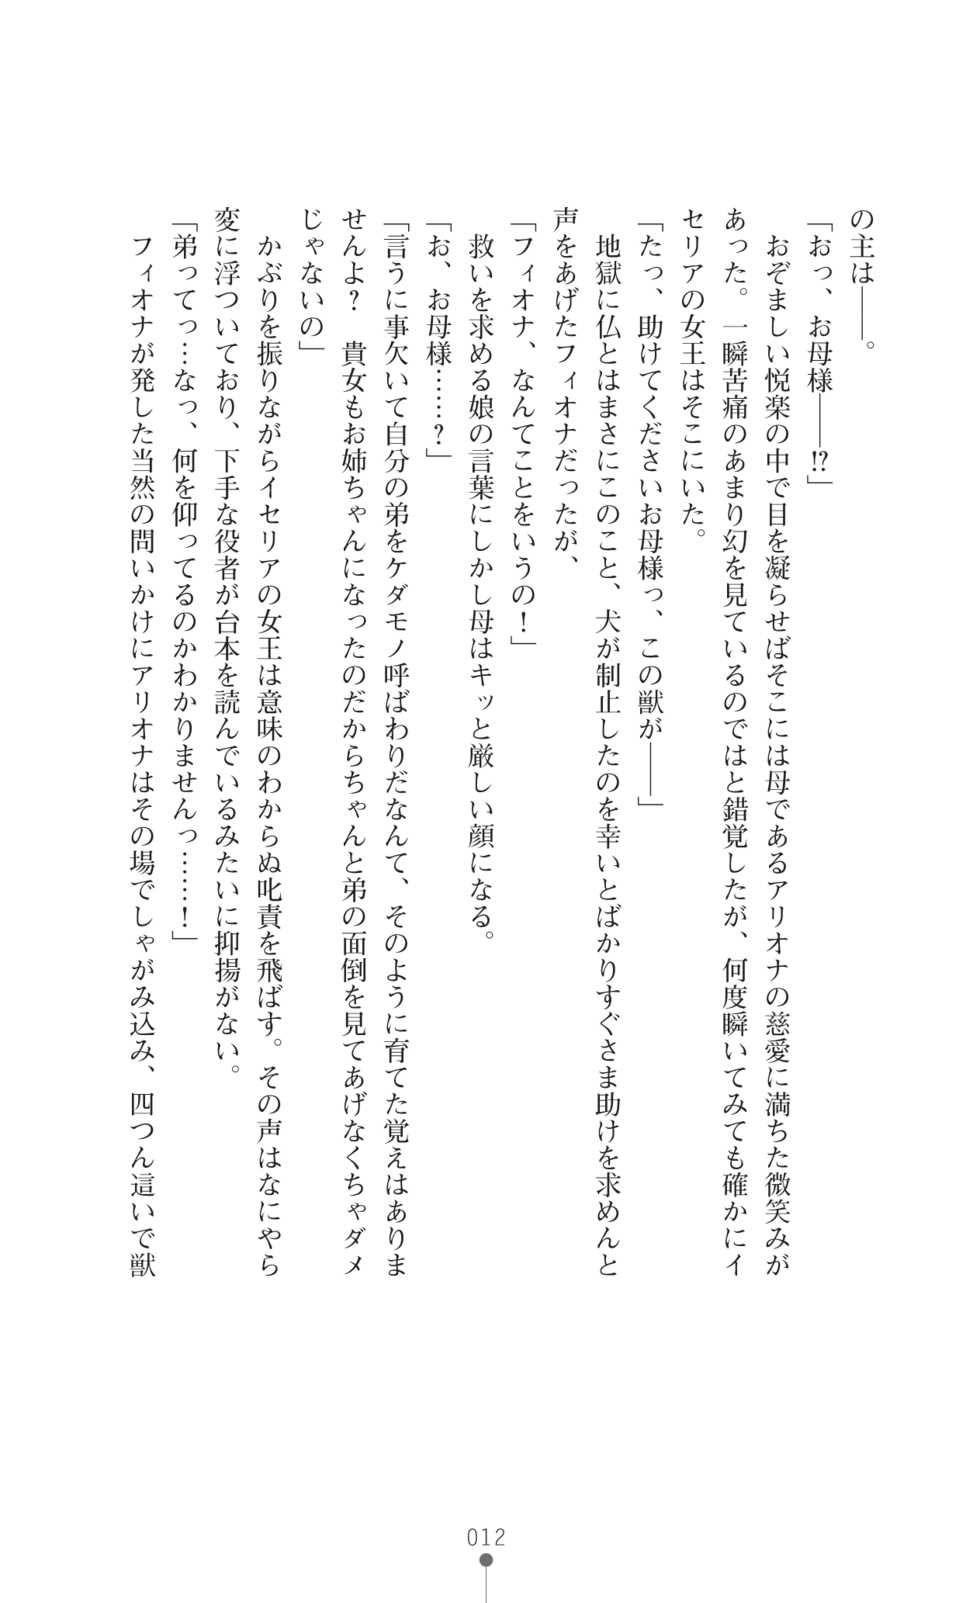 の主は――。
「おっ、お母様――!?」
　おぞましい悦楽の中で目を凝らせばそこには母であるアリオナの慈愛に満ちた微笑みが
あった。一瞬苦痛のあまり幻を見ているのではと錯覚したが、何度瞬いてみても確かにイ
セリアの女王はそこにいた。
「たっ、助けてくださいお母様っ、この獣が――」
　地獄に仏とはまさにこのこと、犬が制止したのを幸いとばかりすぐさま助けを求めんと
声をあげたフィオナだったが、
「フィオナ、なんてことをいうの！」
　救いを求める娘の言葉にしかし母はキッと厳しい顔になる。
「お、お母様……？」
「言うに事欠いて自分の弟をケダモノ呼ばわりだなんて、そのように育てた覚えはありま
せんよ？　貴女もお姉ちゃんになったのだからちゃんと弟の面倒を見てあげなくちゃダメ
じゃないの」
　かぶりを振りながらイセリアの女王は意味のわからぬ叱責を飛ばす。その声はなにやら
変に浮ついており、下手な役者が台本を読んでいるみたいに抑揚がない。
「弟ってっ…なっ、何を仰ってるのかわかりませんっ……！」
　フィオナが発した当然の問いかけにアリオナはその場でしゃがみ込み、四つん這いで獣
012